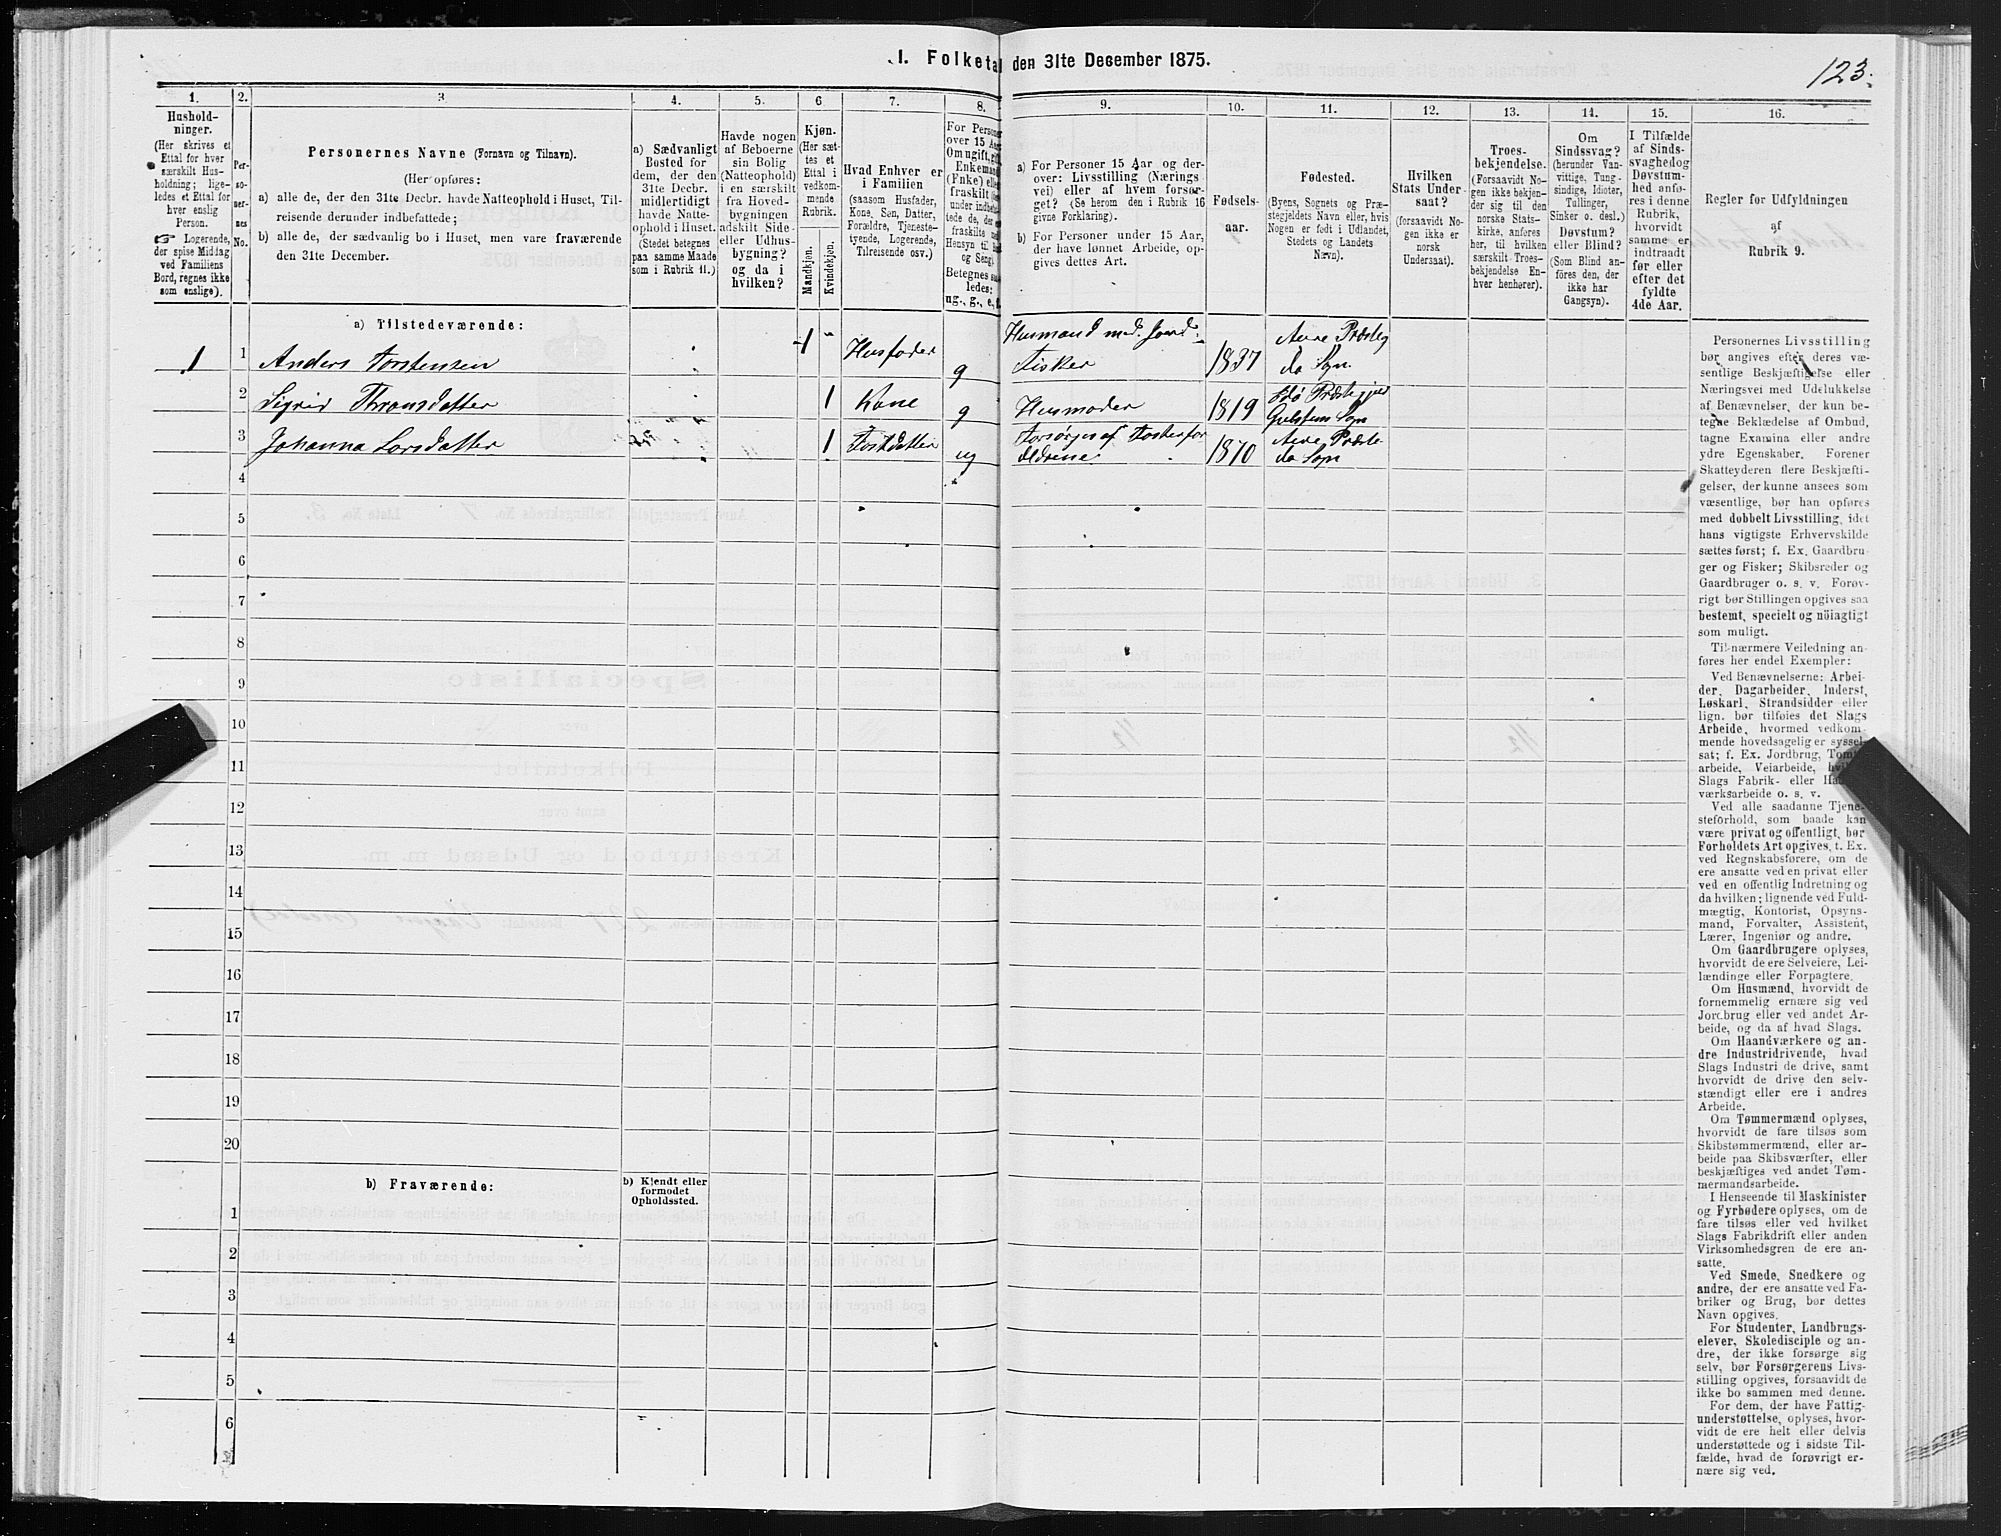 I. Folketal den 31te December 1875.
123.
1.
2.
3
4.
5.
6
7.
8.
9.
10.
11.
12.
13.
14.
15.
16.
Hushold-
ninger.
(Her skrives et
Ettal for hver
særskilt Hus-
holdning; lige-
ledes et Ettal for
hver enslig
Person.
☞ Logerende,
der spise Middag
ved Familiens
Bord, regnes ikke
som enslige).
Per-
so-
ner-
nes
No.
Personernes Navne (Fornavn og Tilnavn).
(Her opføres:
a) alle de, der den 31te Decbr. havde Natteophold i Huset, Til-
reisende derunder indbefattede;
b) alle de, der sædvanlig bo i Huset, men vare fraværende
den 31te December.
a) Sædvanligt
Bosted for
dem, der den
31te Decbr.
midlertidigt
havde Natte-
ophold i Huset.
(Stedet betegnes
paa samme Maade
som i Rubrik 11.)
Havde nogen
af Beboerne
sin Bolig
(Natteophold)
i en særskilt
fra Hoved-
bygningen
adskilt Side-
eller Udhus-
bygning?
og da i
hvilken?
Kjøn.
(Her sæt-
tes et
Ettal i
vedkom-
mende
Rubrik.
Mandkjøn.
Kvindekjøn.
Hvad Enhver er
i Familien
(saasom Husfader,
Kone, Søn, Datter,
Forældre, Tjeneste-
tyende, Logerende,
Tilreisende osv.)
For Persone
over 15 Aar
Om ugift, gift
Enkemand
(Enke) eller
fraskilt
under indbefat-
tede de, der
fraskilte
Hensyn til
og Seng).
Betegnes saa
ledes:
ug., g., e., f.
a) For Personer 15 Aar og der-
over: Livsstilling (Nærings
vei) eller af hvem forsør-
get? (Se herom den i Rubrik 16
givne Forklaring).
b) For Personer under 15 Aar,
der have lønnet Arbeide, op-
gives dettes Art.
Fødsels-
aar.
Fødested.
(Byens, Sognets og Præ-
stegjeldets Navn eller, hvis
Nogen er født i Udlandet,
Stedets og Landets
Navn).
Hvilken
Stats Under-
saat?
(forsaavidt No-
gen ikke er
norsk
Undersaat).
Troes-
bekjendelse.
(Forsaavidt No-
gen ikke bekjen-
der sig til den
norske Stats-
kirke, anføres
her, til hvilken
særskilt Troes-
bekjendelse En-
hver henhører).
Om
Sindssvag?
(herunder Van-
vittige, Tung-
sindige, Idioter,
Tullinger,
Sinker o. desl.)
Døvstum?
eller Blind?
(Som Blind an-
føres den, der
ikke har
Gangsyn).
I Tilfælde
af Sinds-
svaghedog
Døvstum-
hed anfø-
res i denne
Rubrik,
hvorvidt
samme er
indtraadt
før eller
efter det
fyldte
4de Aar.
Regler for Udfyldningen
af
Rubrik 9.
a) Tilstedeværende:
1 1 Anders Torstensen 1 Husfader g Husmand med Jord.
Fisker 1837 Aure Præsteg
da Sogn
2 Sigrid Thronsdatter 1 Kone g Husmoder 1819 Edø Præstegjeld
Sogn
3 Johanna Larsdatter 1 Fostdatter ug Forsørges af Fosterfor
ældrene 1870 Aure Præste
da Sogn
4
5
6
7
8
9
10
11
12
13
14
15
16
17
18
19
20
b) Fraværende:
b) Kjendt eller
formodet
Opholdssted.
1
2
3
4
5
6
Personernes Livsstilling
bør angives efter deres væ-
sentlige Beskjæftigelse eller
Næringsvei med Udelukkelse
af Benævnelser, der kun be-
tegne Beklædelse af Ombud,
tagne Examina eller andre
ydre Egenskaber. Forener
Skatteyderen flere Beskjæfti-
gelser, der kunne ansees som
væsentlige, bør han opføres
med dobbelt Livsstilling, idet
hans vigtigste Erhvervskilde
sættes først; f. Ex. Gaardbru-
ger og Fisker; Skibsreder og
Gaardbruger o. s. v. Forøv-
rigt bør Stillingen opgives saa
bestemt, specielt og nöiagtigt
som muligt.
Til nærmere Veiledning an-
føres her endel Exempler:
Ved Benævnelserne: Arbei-
der, Dagarbeider, Inderst,
Løskarl, Strandsidder eller
lign. bør tilføies det Slags
Arbeide, hvormed vedkom-
mende hovedsagelig er syssel-
sat; f. Ex. Jordbrug, Tomt-
arbeide, Veiarbeide, hvilket
Slags Fabrik- eller Haand-
værksarbeide o. s. v.
Ved alle saadanne Tjene-
steforhold, som baade kan
være privat og offentligt, bør
Forholdets Art opgives, t. Ex.
ved Regnskabsførere, om de
ere ansatte ved en privat eller
ved en offentlig Indretning og
da hvilken; lignende ved Fuld-
mægtig, Kontorist, Opsyns-
mand, Forvalter, Assistent,
Lærer, Ingeniør og andre.
Om Gaardbrugere oplyses,
hvorvidt de ere Selveiere, Lei-
lændinge eller Forpagtere.
Om Husmænd, hvorvidt de
fornemmelig ernære sig ved
Jordbrug eller ved andet Ar-
beide, og da af hvad Slags.
Om Haandværkere og an-
dre Industridrivende, hvad
Slags Industri de drive, samt
hvorvidt de drive den selv-
stændigt eller ere i andres
Arbeide.
Om Tømmermænd oplyses,
hvorvidt de fare tilsøs som
Skibstømmermænd, eller ar-
beide paa Skibsværfter, eller
beskjæftiges ved andet Tøm-
mermandsarbeide.
I Henseende til Maskinister
og Fyrbødere oplyses, om de
fare tilsøs eller ved hvilket
Slags Fabrikdrift eller anden
Virksomhedsgren de ere an-
satte.
Ved Smede, Snedkere og
andre, der ere ansatte ved Fa-
briker og Brug, bør dettes
Navn opgives.
For Studenter, Landbrugs-
elever, Skoledisciple og an-
dre, der ikke forsørge sig
selv, bør Forsørgerens Livs-
stilling opgives, forsaavidt de
ikke bo sammen med denne.
For dem, der have Fattig-
understøttelse, oplyses, hvor-
vidt de ere helt eller delvis
understøttede og i sidste Til-
fælde, hvad de forøvrigt er-
nære sig ved.